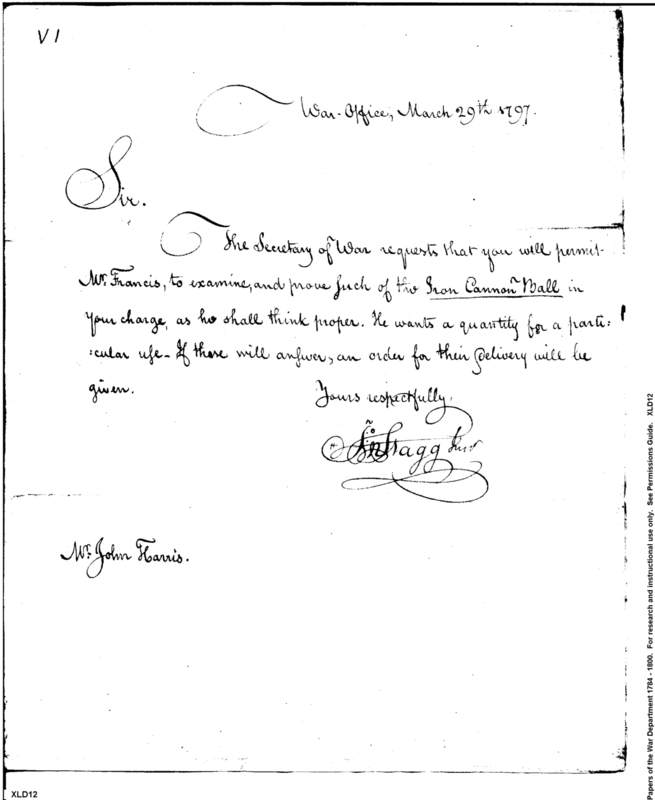 VI
War-Office, March 29th 1797.
Sir.
The Secretary of War requests that you will permit
Mr. Francis, to examine, and prove such of the Iron Cannon Ball in
your charge, as he shall think proper. He wants a quantity for a parti:
:cular use - If these will answer, an order for their Delivery will be
given.
Yours respectfully.
Jno Stagg Junr
Mr. John Harris.
XLD12
Papers of the War Department 1784 - 1800. For research and instructional use only. See Permissions Guide. XLD12